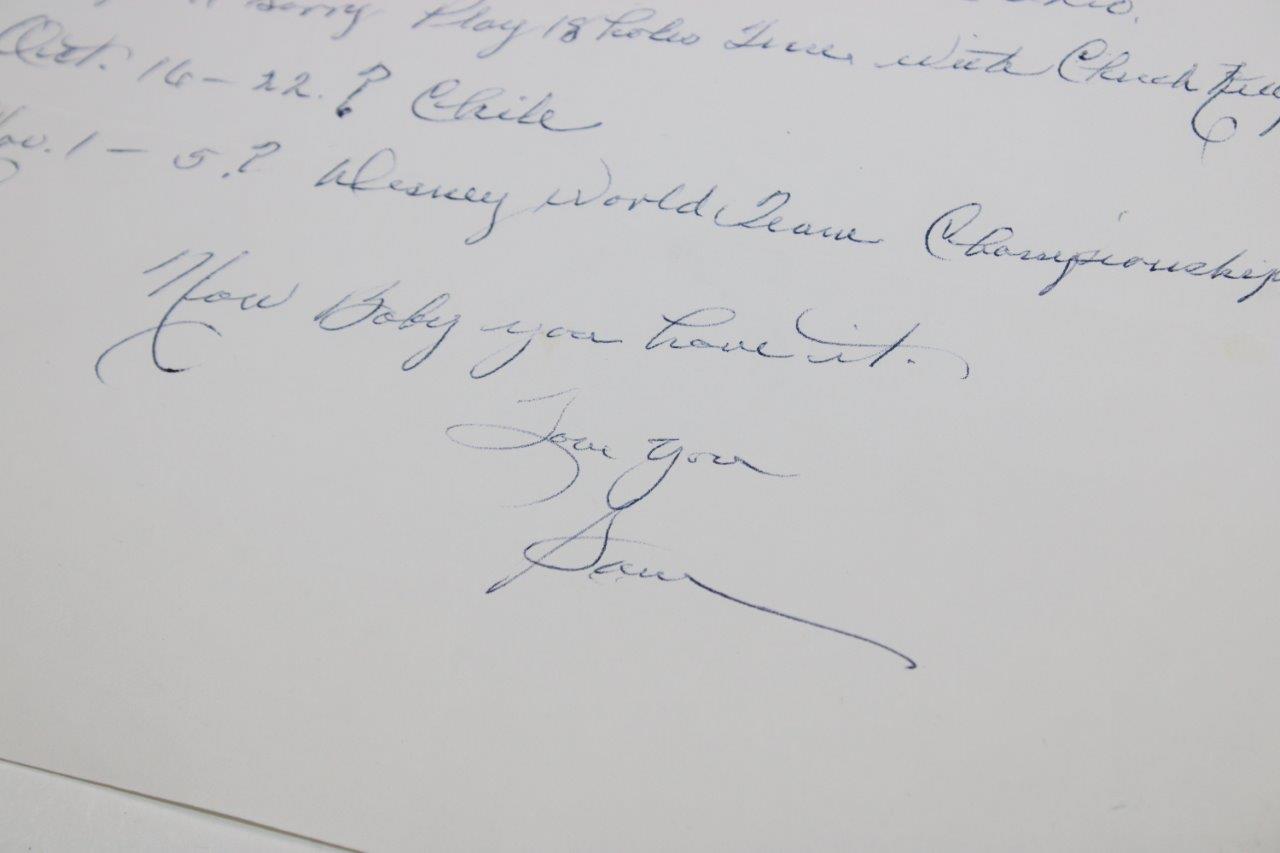 Play 18 holes Time with Chuck Kelly
Oct. 16 - 22. ? Chile
Nov. 1 - 5. ? Disney World Team Championship
Now Baby you have it.
Love you
Sam